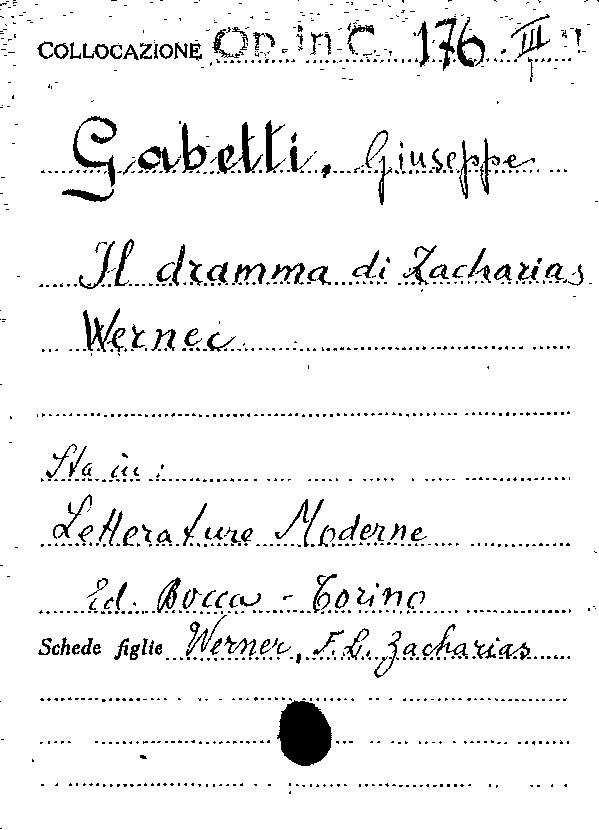 COLLOCAZIONE Op. in C. 176. III
Gabetti, Giuseppe
Il dramma di Zacharias
Werner
Sta in:
Letterature Moderne
Ed. Bocca - Torino
Schede figlie Werner, F. L. Zacharias